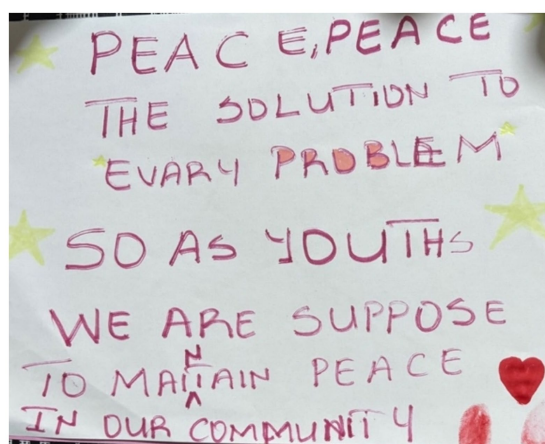 PEACE, PEACE
THE SOLUTION TO
EVARY PROBLEM
SO AS YOUTHS
WE ARE SUPPOSE
TO MAINTAIN PEACE
IN OUR COMMUNITY